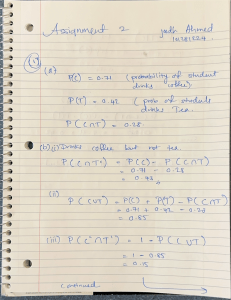 Assignment 2
Ahmed
(a)
P(C) = 0.71 (probability of student
drinks coffee)
P(T) = 0.42 (prob of students
drinks Tea.
P(C∩T) = 0.28.
(b)(i) Drinks coffee but not tea.
P(C∩T') = P(C) - P(C∩T)
= 0.71 - 0.28
= 0.43
(ii)
P(C∪T) = P(C) + P(T) - P(C∩T)
= 0.71 + 0.42 - 0.28
= 0.85
(iii) P(C'∩T') = 1 - P(C∪T)
= 1 - 0.85
= 0.15
Continued